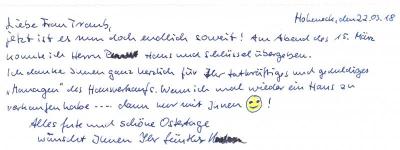 Hoheneck, den 22.03.18
Liebe Frau Traub,
jetzt ist es nun doch endlich soweit! Am Abend des 15. März
konnte ich Herrn Haus und Schlüssel übergeben.
Ich danke Ihnen ganz herzlich für Ihr tatkräftiges und geduldiges
"Managen" des Hausverkaufs. Wenn ich mal wieder ein Haus zu
verkaufen habe ---- dann nur mit Ihnen !
Alles Gute und schöne Ostertage
wünscht Ihnen Ihr